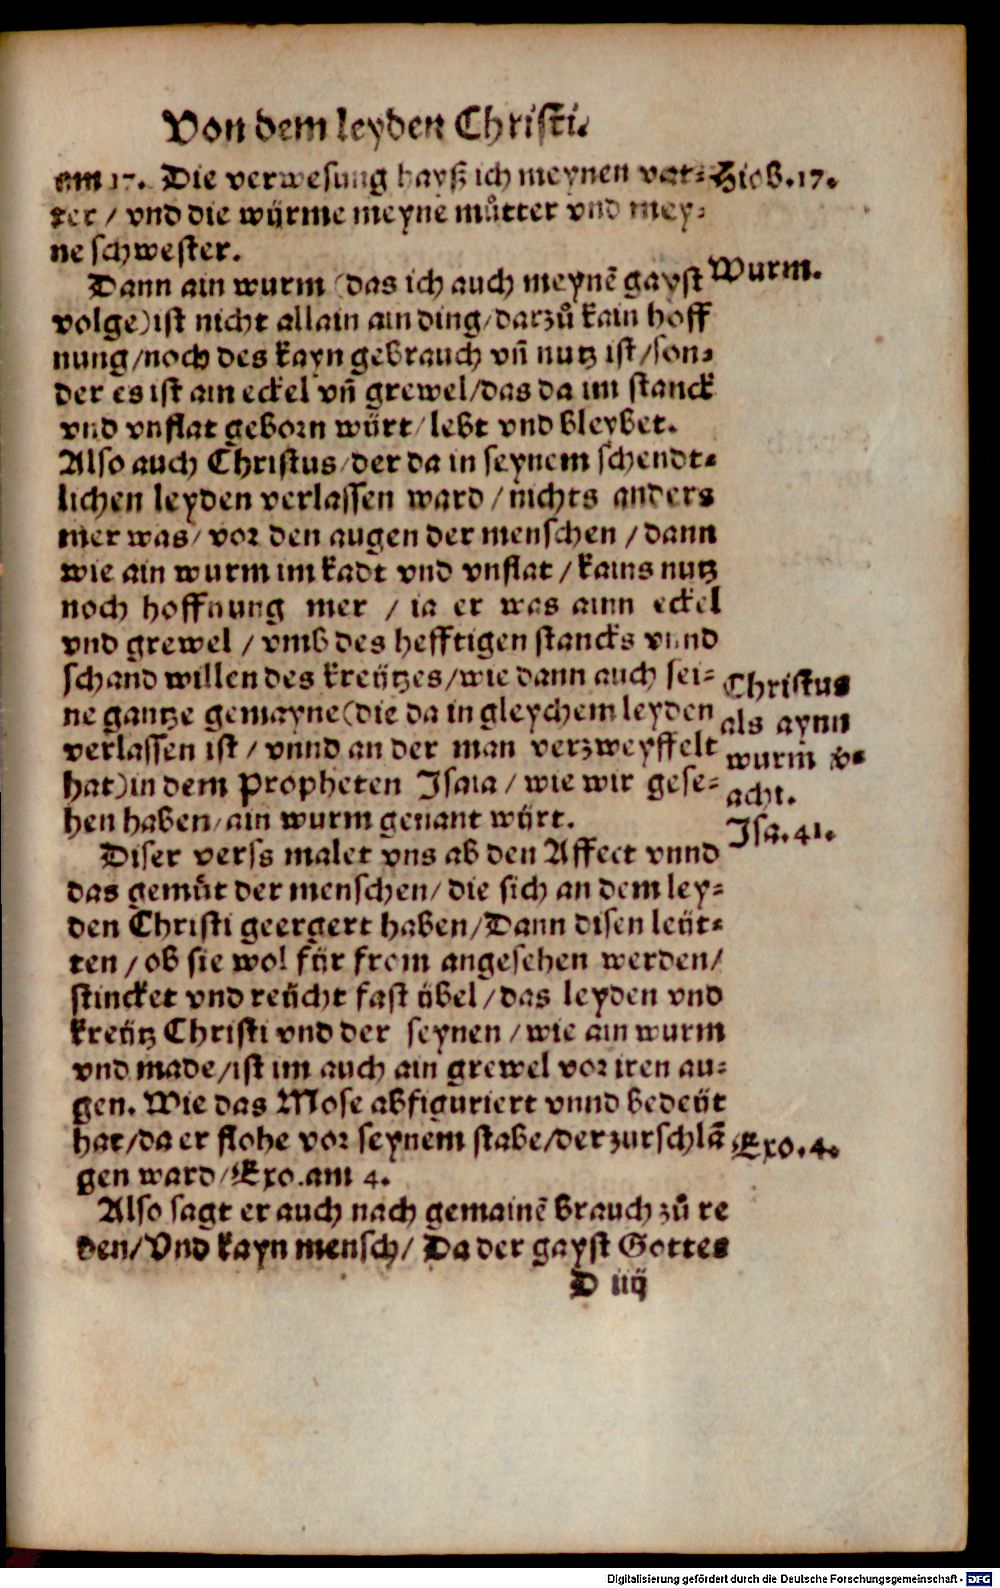 Von dem leyden Christi.
am 17. Die verwesung hayß ich meynen vat-
ter / vnd die würme meyne můtter vnd mey-
ne schwester.
Hiob. 17.
Dann ain wurm (das ich auch meynē gayst
volge) ist nicht allain ain ding / darzů kain hoff
nung / noch des kayn gebrauch vn̄ nutz ist / son-
der es ist ain eckel vn̄ grewel / das da im stanck
vnd vnflat geborn würt / lebt vnd bleybet.
Wurm.
Also auch Christus / der da in seynem schendt-
lichen leyden verlassen ward / nichts anders
mer was / vor den augen der menschen / dann
wie ain wurm im kadt vnd vnflat / kains nutz
noch hoffnung mer / ia er was ainn eckel
vnd grewel / vmb des hefftigen stancks vnnd
schand willen des kreützes / wie dann auch sei-
ne gantze gemayne (die da in gleychem leyden
verlassen ist / vnnd an der man verzweyffelt
hat) in dem Propheten Isaia / wie wir gese-
hen haben / ain wurm genant würt.
Christus
als aynn
wurm v-
acht.
Isa. 41.
Diser verss malet vns ab den Affect vnnd
das gemüt der menschen / die sich an dem ley-
den Christi geergert haben / Dann disen leüt-
ten / ob sie wol für from angesehen werden /
stincket vnd reücht fast übel / das leyden vnd
kreütz Christi vnd der seynen / wie ain wurm
vnd made / ist im auch ain grewel vor iren au-
gen. Wie das Mose abfiguriert vnnd bedeüt
hat / da er flohe vor seynem stabe / der zur schlā
gen ward / Exo. am 4.
Exo. 4.
Also sagt er auch nach gemainē brauch zů re
den / Vnd kayn mensch / Da der gayst Gottes
D iiij
Digitalisierung gefördert durch die Deutsche Forschungsgemeinschaft - DFG